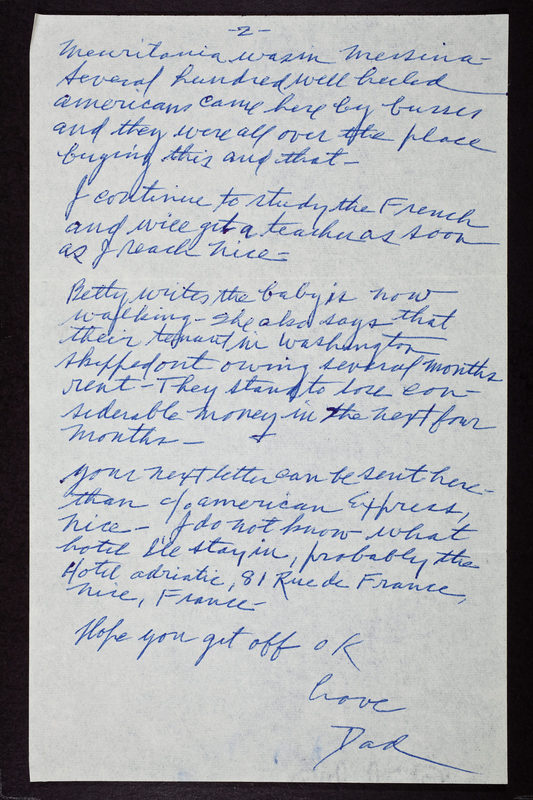 -2-
Meuritania was in Messina-
Several hundred well heeled
americans came here by busses
and they were all over the place
buying this and that-
I continue to study the French
and will get a teacher as soon
as I reach Nice-
Betty writes the baby is now
walking- She also says that
their tenant in Washington
skipped out owing several months
rent- They stand to lose con-
siderable money in the next four
months-
Your next letter can be sent here-
than c/o american Express,
Nice- I do not know what
hotel I'le stay in, probably the
Hotel adriatic, 81 Rue de France,
Nice, France-
Hope you get off OK
Love
Dad